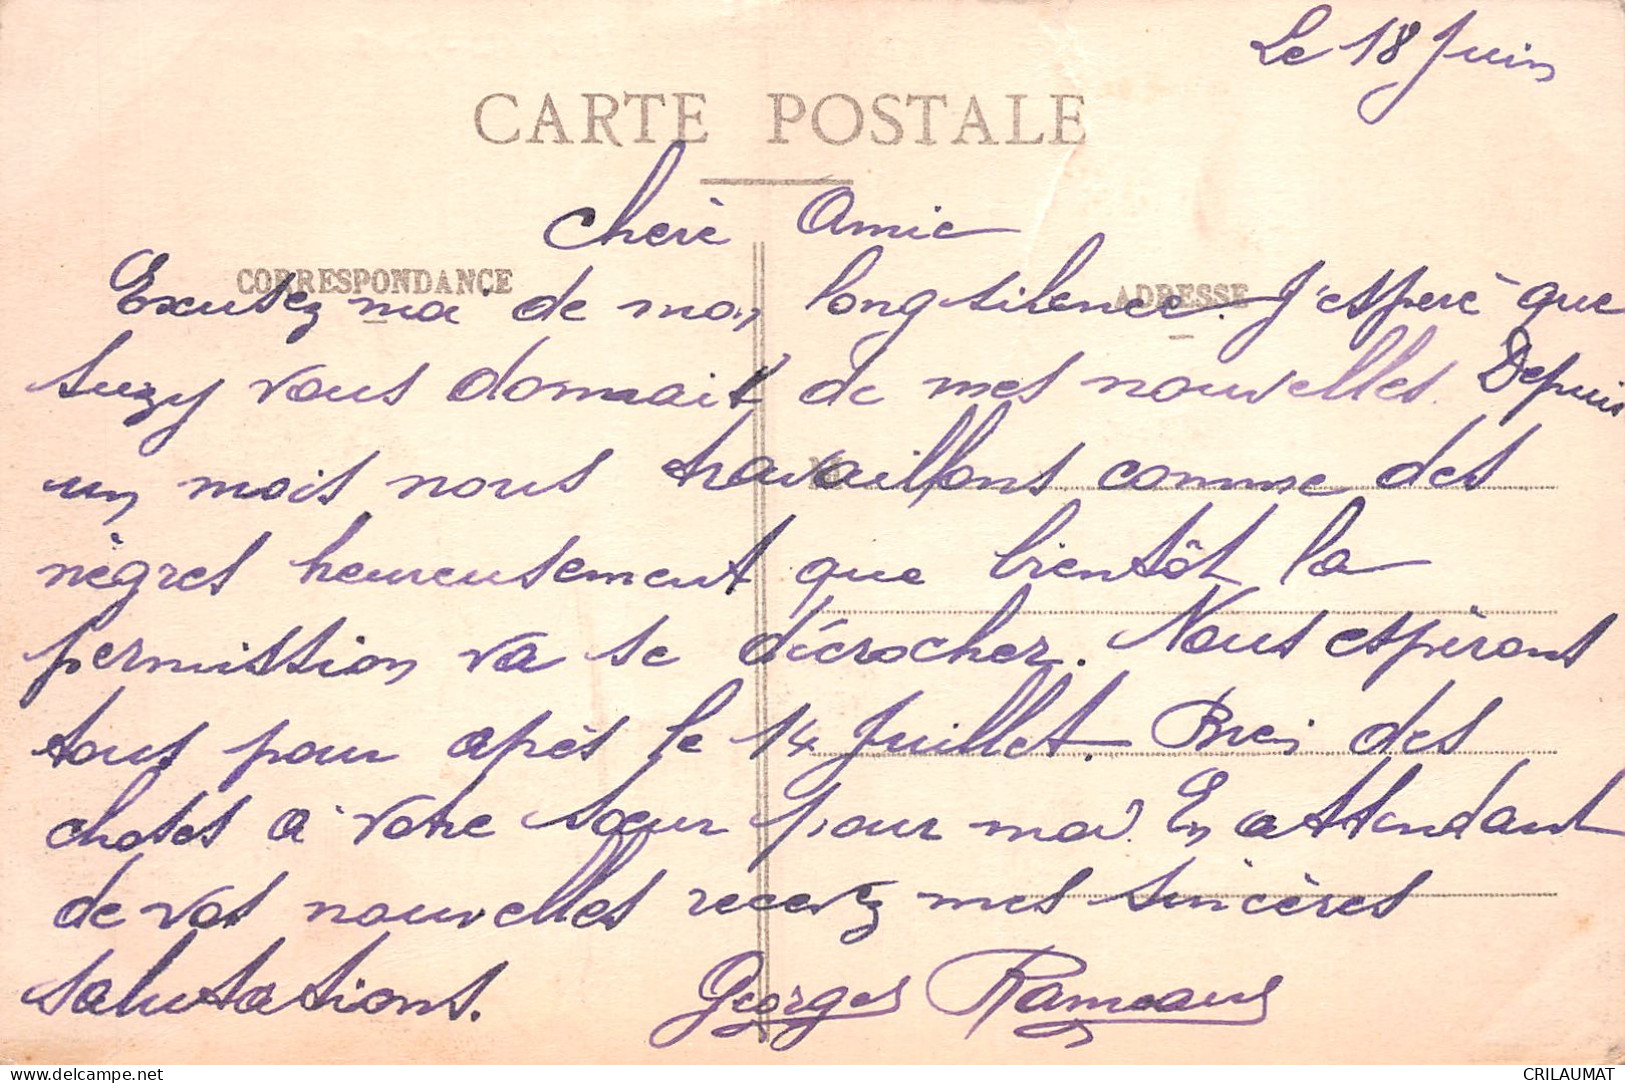 Le 18 Juin
CARTE POSTALE
Chère Amie
CORRESPONDANCE
ADRESSE
Excusez moi de mon long silence. J'espère que
Suzy vous donnait de mes nouvelles. Depuis
un mois nous travaillons comme des
nègres heureusement que bientôt la
permission va se décrocher. Nous espérons
tous pour après le 14 Juillet. Bien des
choses à votre sœur pour moi. En attendant
de vos nouvelles recevez mes sincères
salutations. Georges Rameau
delcampe.net
CRILAUMAT